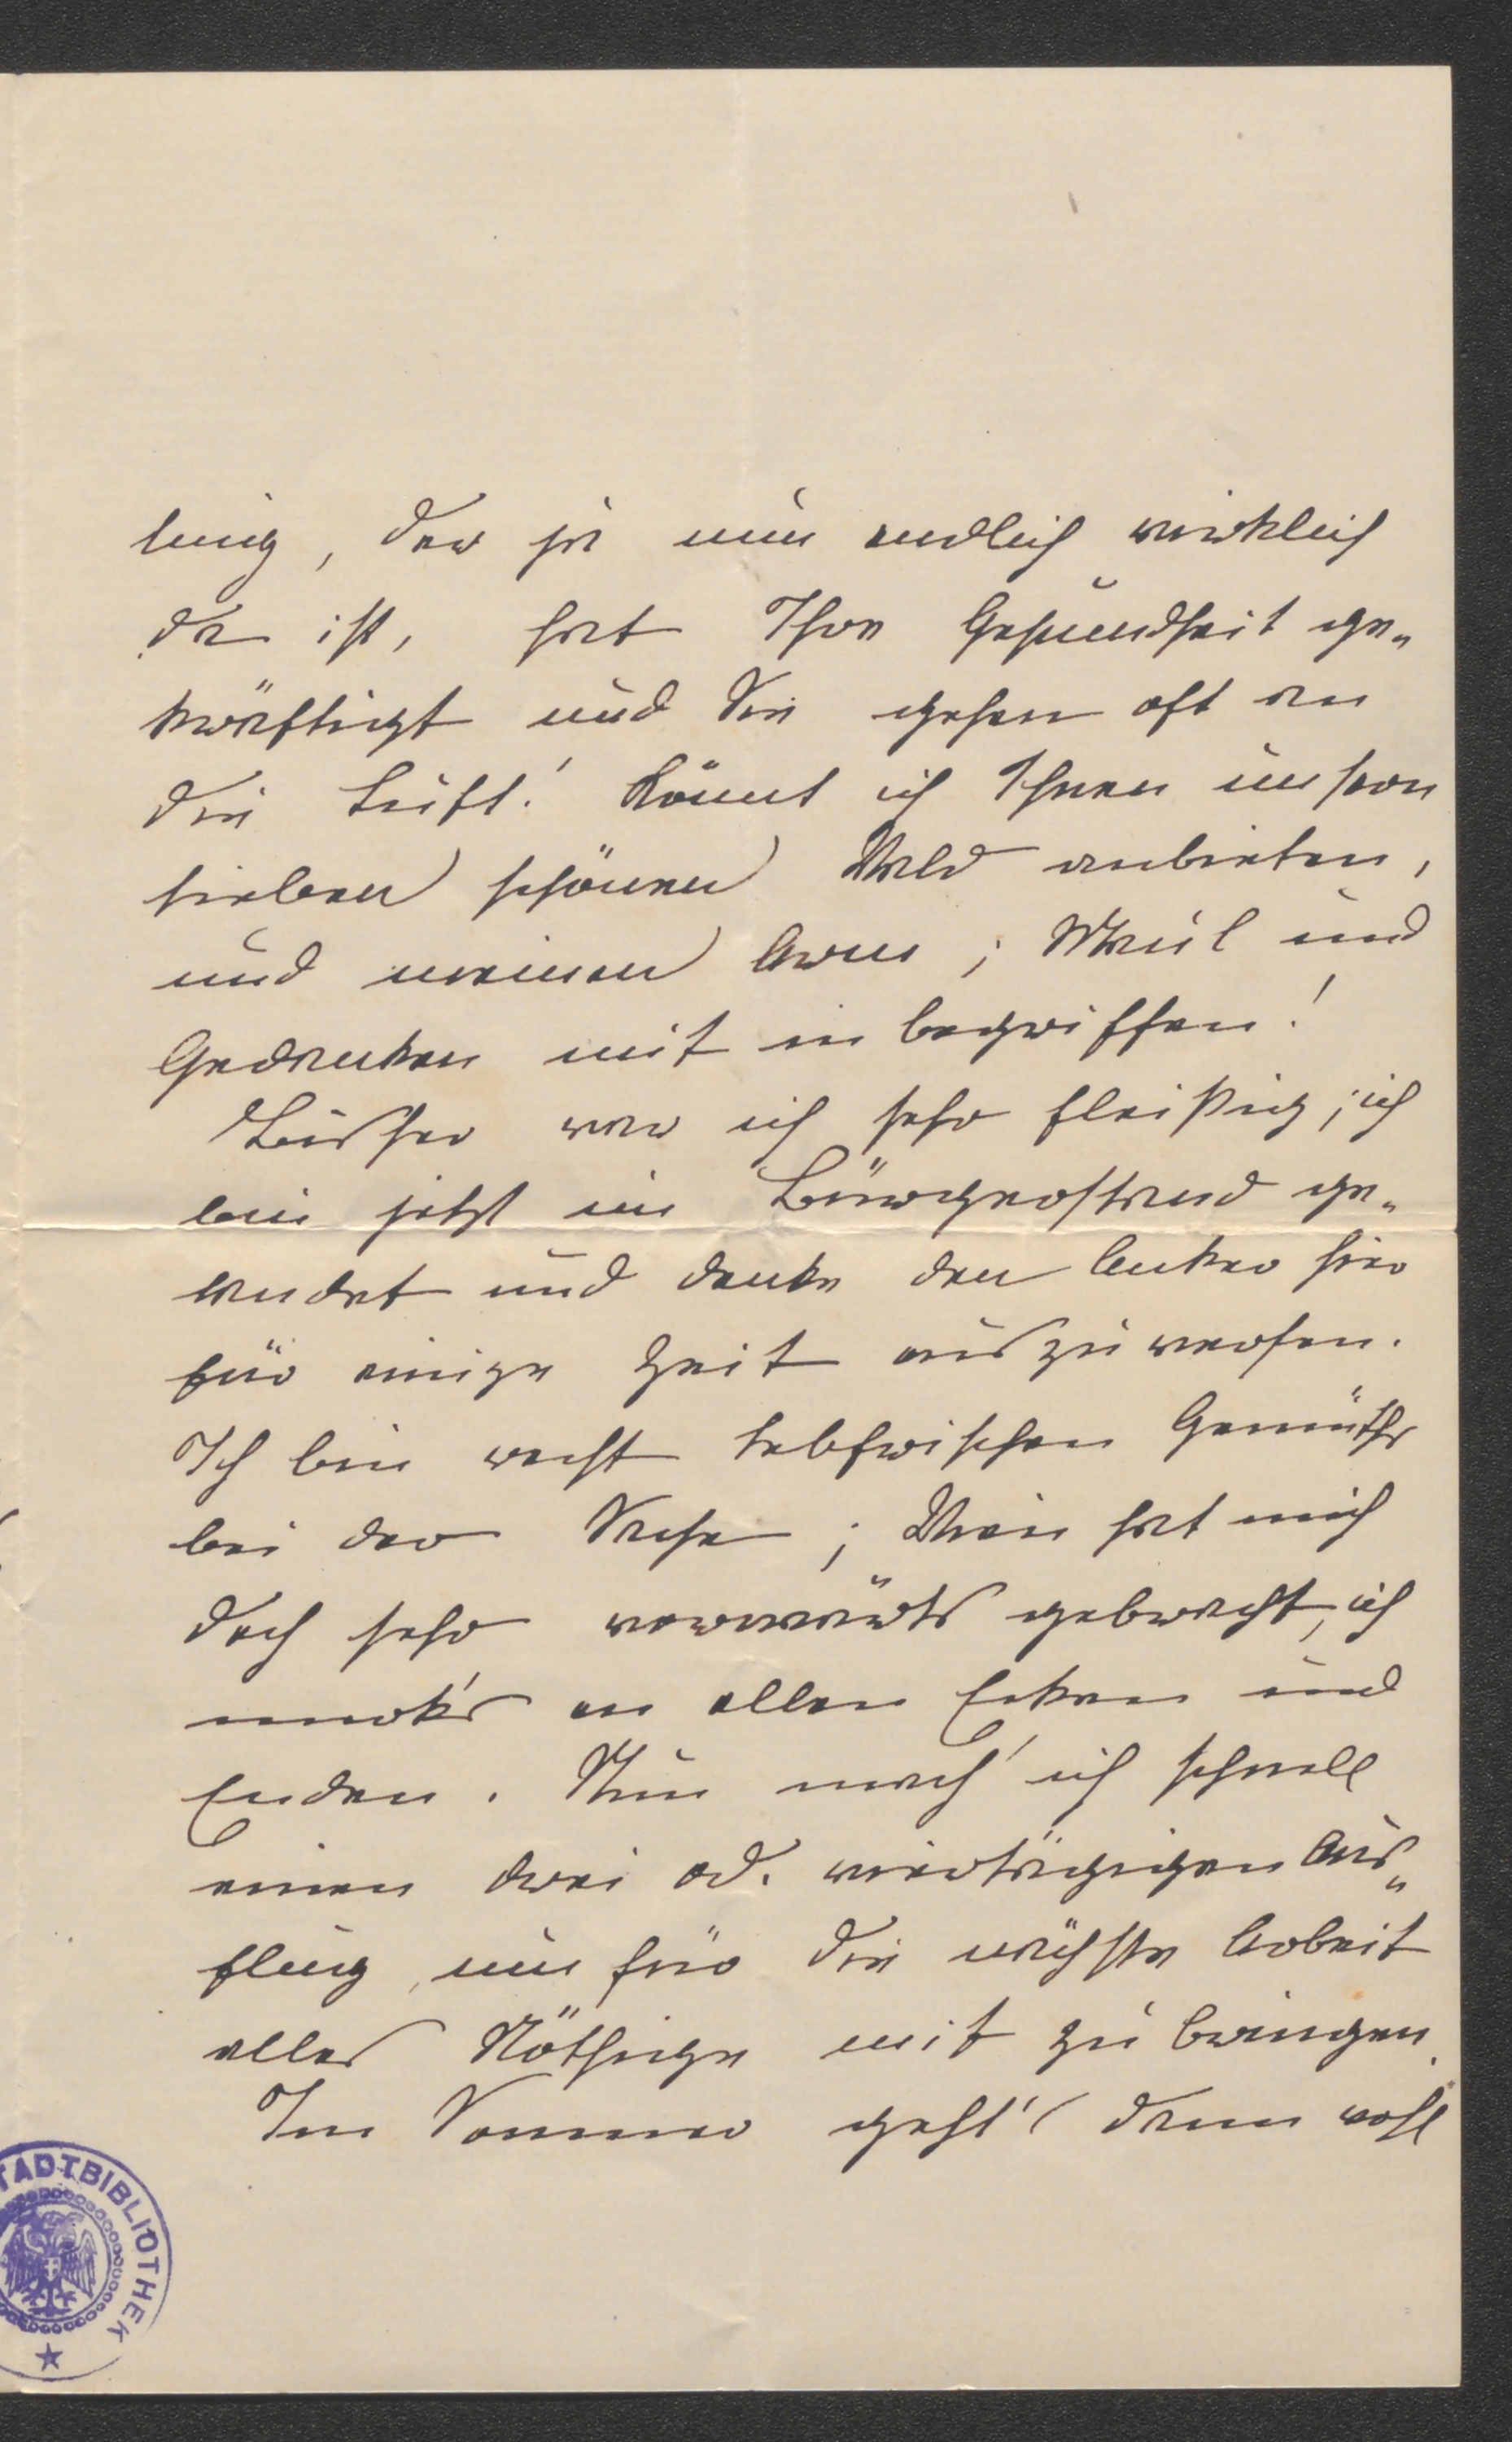 ling, der ja nun endlich wirklich
da ist, hat Ihre Gesundheit ge-
kräftigt und Sie gehen oft an
die Luft! Könnt ich Ihnen unsern
lieben schönen Wald anbieten,
und meinen Arm; Maul und
Gedanken mit in begriffen!
Bisher war ich sehr fleißig; ich
bin jetzt im Bürgerstand ge-
landet und denke den Anker hier
für einige Zeit auszuwerfen.
Ich bin recht lebfrischen Gemüths
bei der Sache; Wien hat mich
doch sehr vorwärts gebracht, ich
merk's an allen Ecken und
Enden. Nun mach' ich schnell
einen drei od. viertägigen Aus-
flug, um für die nächste Arbeit
alles Nöthige mit zu bringen.
Im Sommer geht's dann wohl
STADTBIBLIOTHEK